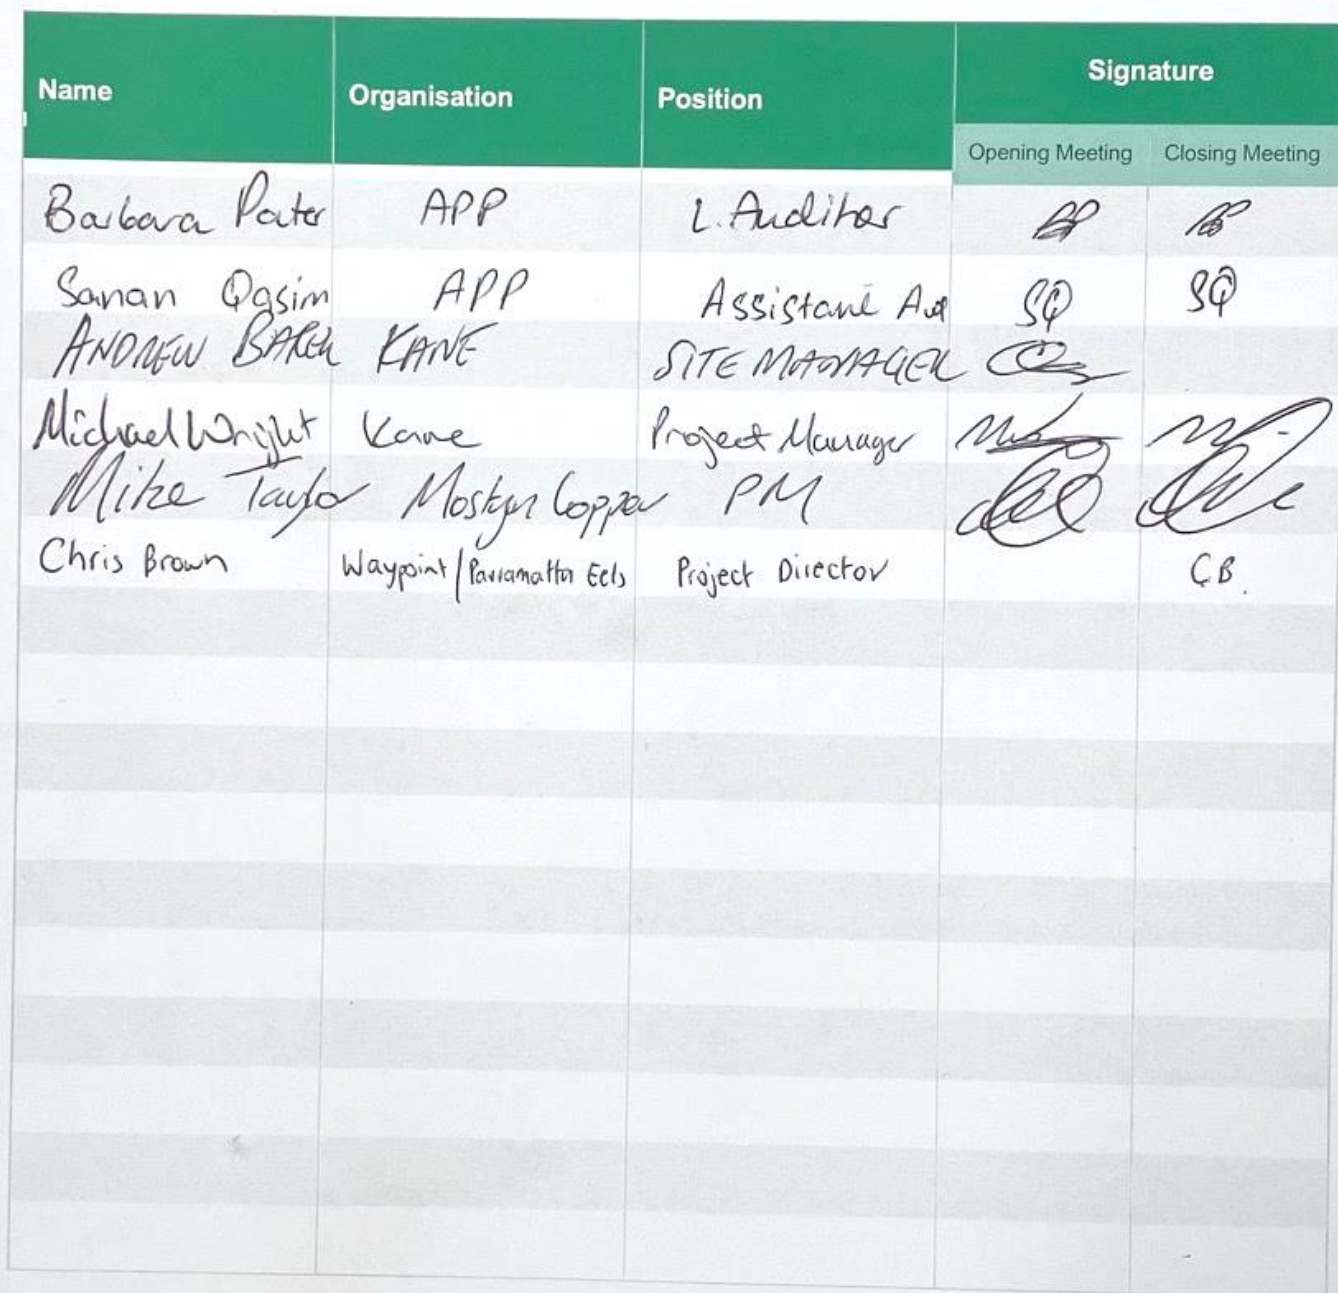 Name Organisation Position Signature
Opening Meeting Closing Meeting
Barbara Pater APP L. Auditor
Sanan Qasim APP Assistant Aud SQ SQ
ANDREW KANE SITE MANAGER
Michael Wright Kane Project Manager
Mike Taylor Mostyn Copper PM
Chris Brown Waypoint/Parramatta Eels Project Director CB.